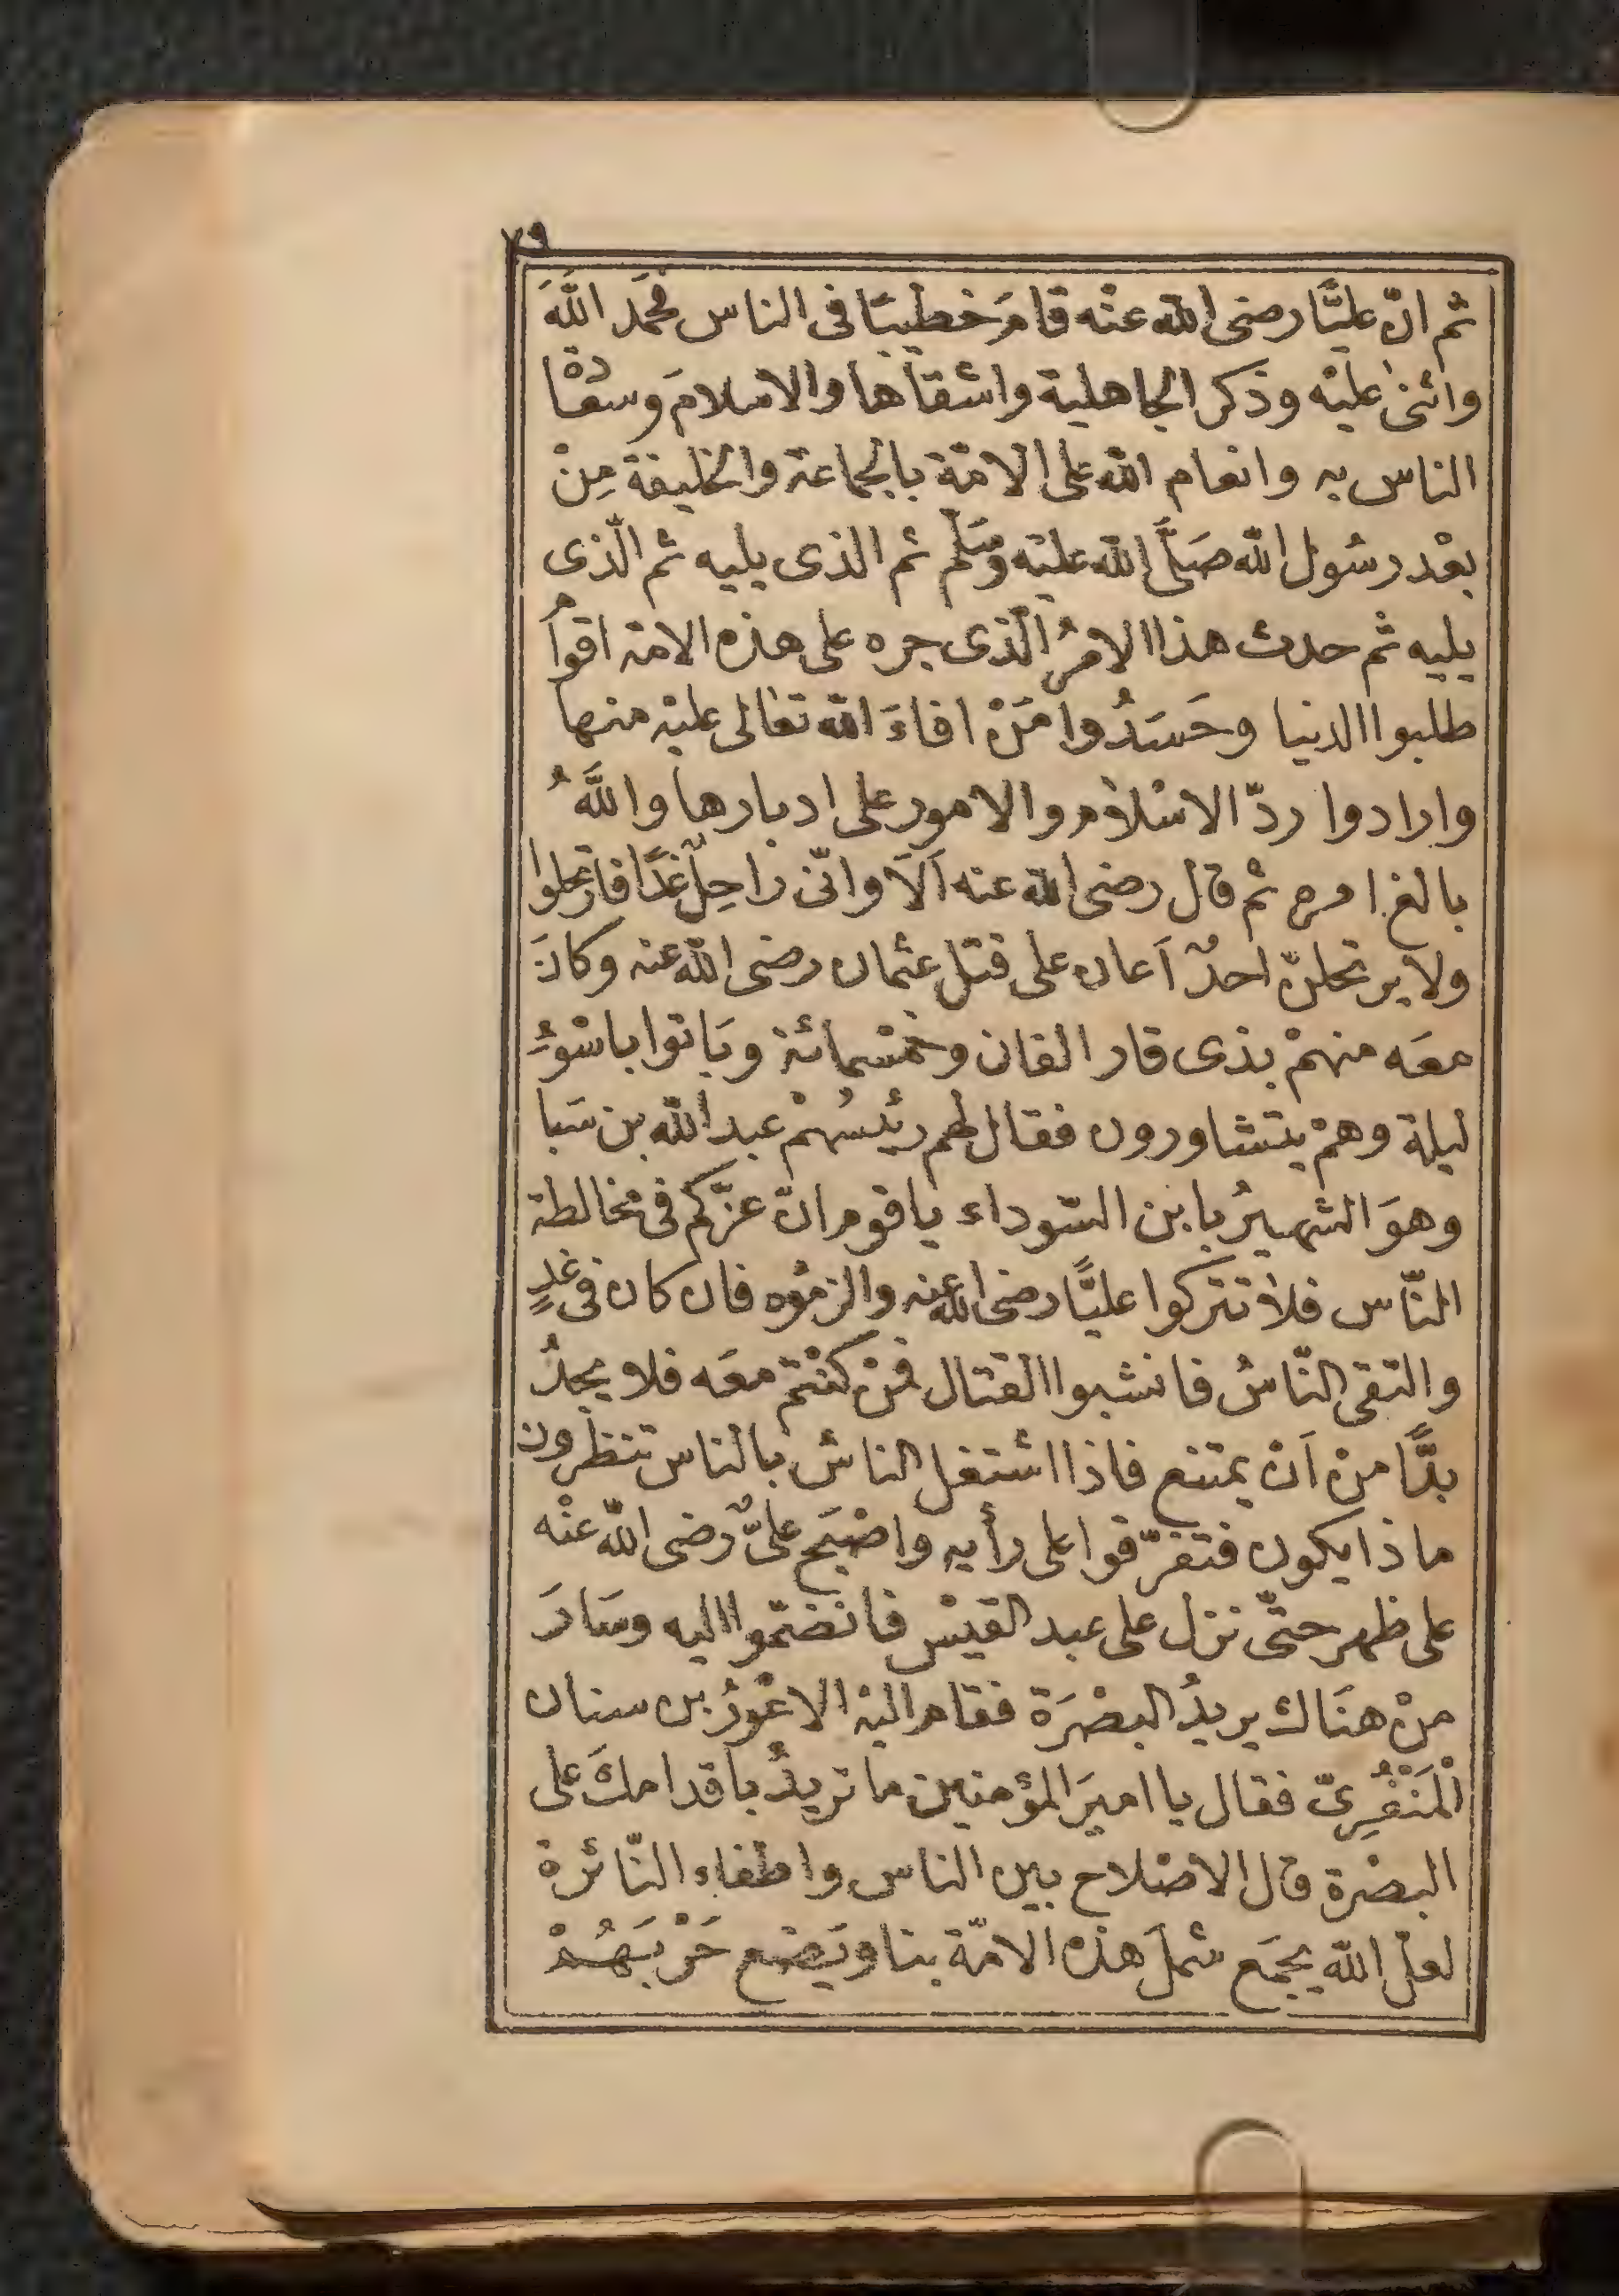 ٧٩
ثم انّ عليًّا رضى الله عنْه قامَ خطيبًا فى الناس فحمَد اللّٰهَ
واثنىٰ عليْه وذكر الجاهلية واشقأها والاسلامَ وسعْادة
الناس به وانعام الله على الامّة بالجماعة والخليفة مِنْ
بعْد رسُول الله صَلَّى الله عليْه وسَلّم ثم الذى يليه ثم الّذى
يليه ثم حدث هذا الامرُ الّذى جره على هذه الامة اقوامٌ
طلبوا الدنيا وحَسَدُوا مَنْ افاءَ الله تعٰالى عليْه منها
وارادوا ردّ الاسْلاٰم والامور على ادبارها واللّٰهُ
بالغ امره ثم قال رضى الله عنه اَلاَ وانّى راحِلٌ غدًا فارتحلوا
ولا يرتحلنّ احدٌ اَعان على قتل عثمان رضى الله عنه وكانَ
معَه منهمْ بذى قار الفان وخمْسمائة وبَاتوا باسْوَءِ
ليلة وهمْ يتشاورون فقال لهم رئيسُهمْ عبد الله بن سَبا
وهوَ الشهيرُ بابن السّوداء ياقوم انّ عزّكم فى مخالطة
النّاس فلاٰ تتركوا عليًّا رضى الله عنه والزمُوه فان كان فى غدٍ
والتقى النّاسُ فانشبوا القتال فمنْ كنْتم معَه فلا يجدُ
بدًّا منْ اَنْ يمتنع فاذا اشتغل الناسُ بالناس تنظرون
ماذا يكون فتفرّقوا على رأيه واصْبَح علىٌّ رضى الله عنْه
على ظهر حتىّ نزل على عبد القيْس فانضمّوا اليه وسَارَ
منْ هنَاك يريدُ البصْرَة فقام اليْه الاعْوَرُ بن سنان
الْمَنْقَرِىّ فقال يا اميرَ المؤمنين ما تريدُ باقدامكَ على
البصْرة قال الاصْلاح بين الناس واطفاء النّائرة
لعلّ الله يجمَع شملَ هذه الامّة بنا ويَضع حَرْبَهُمْ